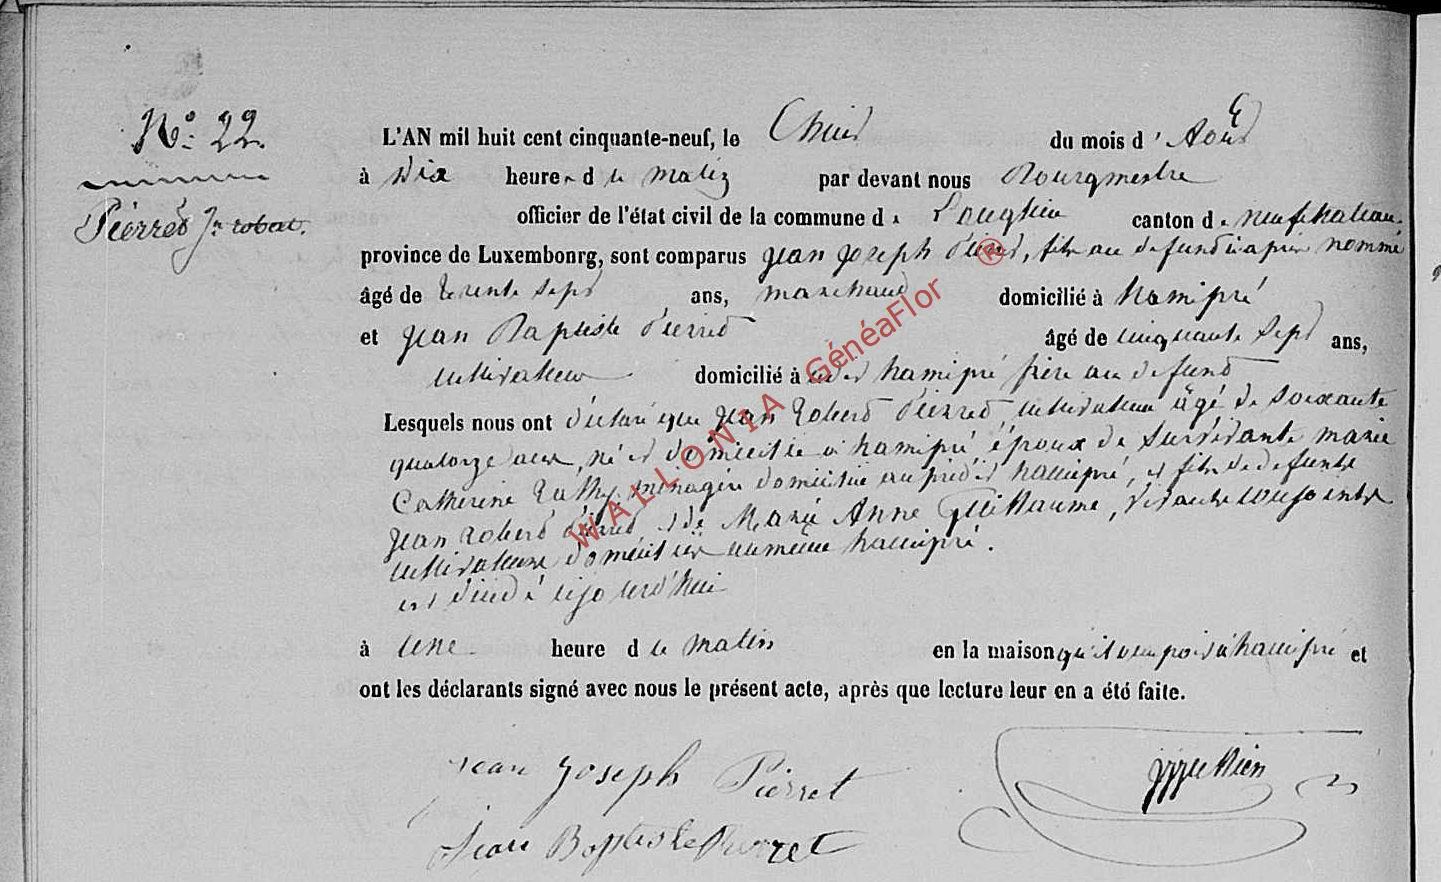 N° 22
Pierret Jn robert.
L'AN mil huit cent cinquante-neuf, le huit du mois d' Août
à Dix heures du matin par devant nous Bourgmestre
officier de l'état civil de la commune de Longlier canton de neufchateau.
province de Luxembonrg, sont comparus jean joseph Pierret, fils au defunt ci après nommé
âgé de trente sept ans, marchand domicilié à hamipré
et jean Baptiste Pierret âgé de cinquante sept ans,
cultivateur domicilié à hamipré frère au defunt
Lesquels nous ont déclaré que jean Robert Pierret cultivateur âgé de soixante
quatorze ans, né et domicilié à hamipré, époux de survivante marie
Catherine ménagère domiciliée au prédit hamipré, et fils de defunts
jean Robert Pierret et de Marie Anne Guillaume, vivants conjoints
cultivateurs domiciliés au même hamipré.
est décédé aujourd'hui
à une heure du matin en la maison qu'il occupait à hamipré et
ont les déclarants signé avec nous le présent acte, après que lecture leur en a été faite.
jean joseph Pierret
Jean Baptiste Pierret
WALLONIA GénéaFlor ®